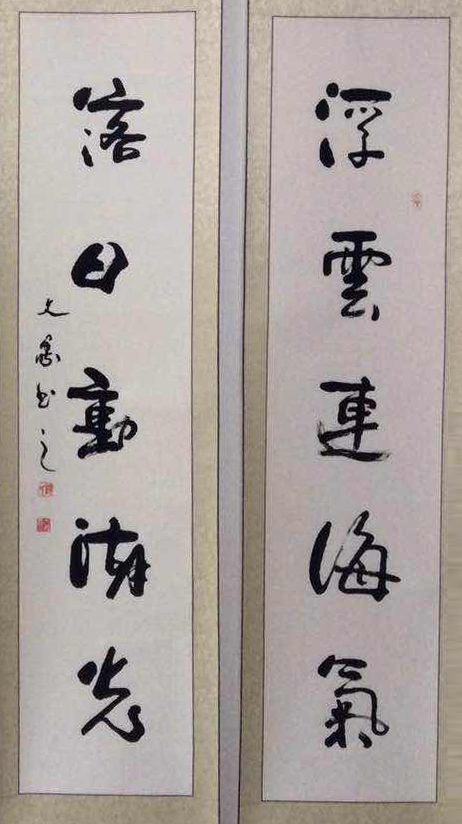 浮雲連海氣
落日動湖光
文 书之